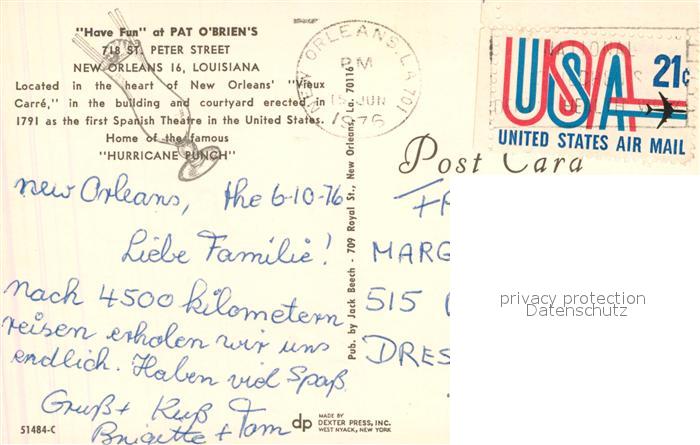 "Have Fun" at PAT O'BRIEN'S
718 ST. PETER STREET
NEW ORLEANS 16, LOUISIANA
Located in the heart of New Orleans' "Vieux
Carré," in the building and courtyard erected in
1791 as the first Spanish Theatre in the United States.
Home of the famous
"HURRICANE PUNCH"
NEW ORLEANS, LA 701
PM
15 JUN
1976
USA 21¢
UNITED STATES AIR MAIL
Post Card
New Orleans, the 6-10-76
Liebe Familie!
nach 4500 kilometern
reisen erholen wir uns
endlich. Haben viel Spaß
Gruß + Kuß Tom
Brigitte + Tom
Pub. by Jack Beech - 709 Royal St., New Orleans, La. 70116
MARG
515
DRES
privacy protection
Datenschutz
51484-C
dp MADE BY
DEXTER PRESS, INC.
WEST NYACK, NEW YORK